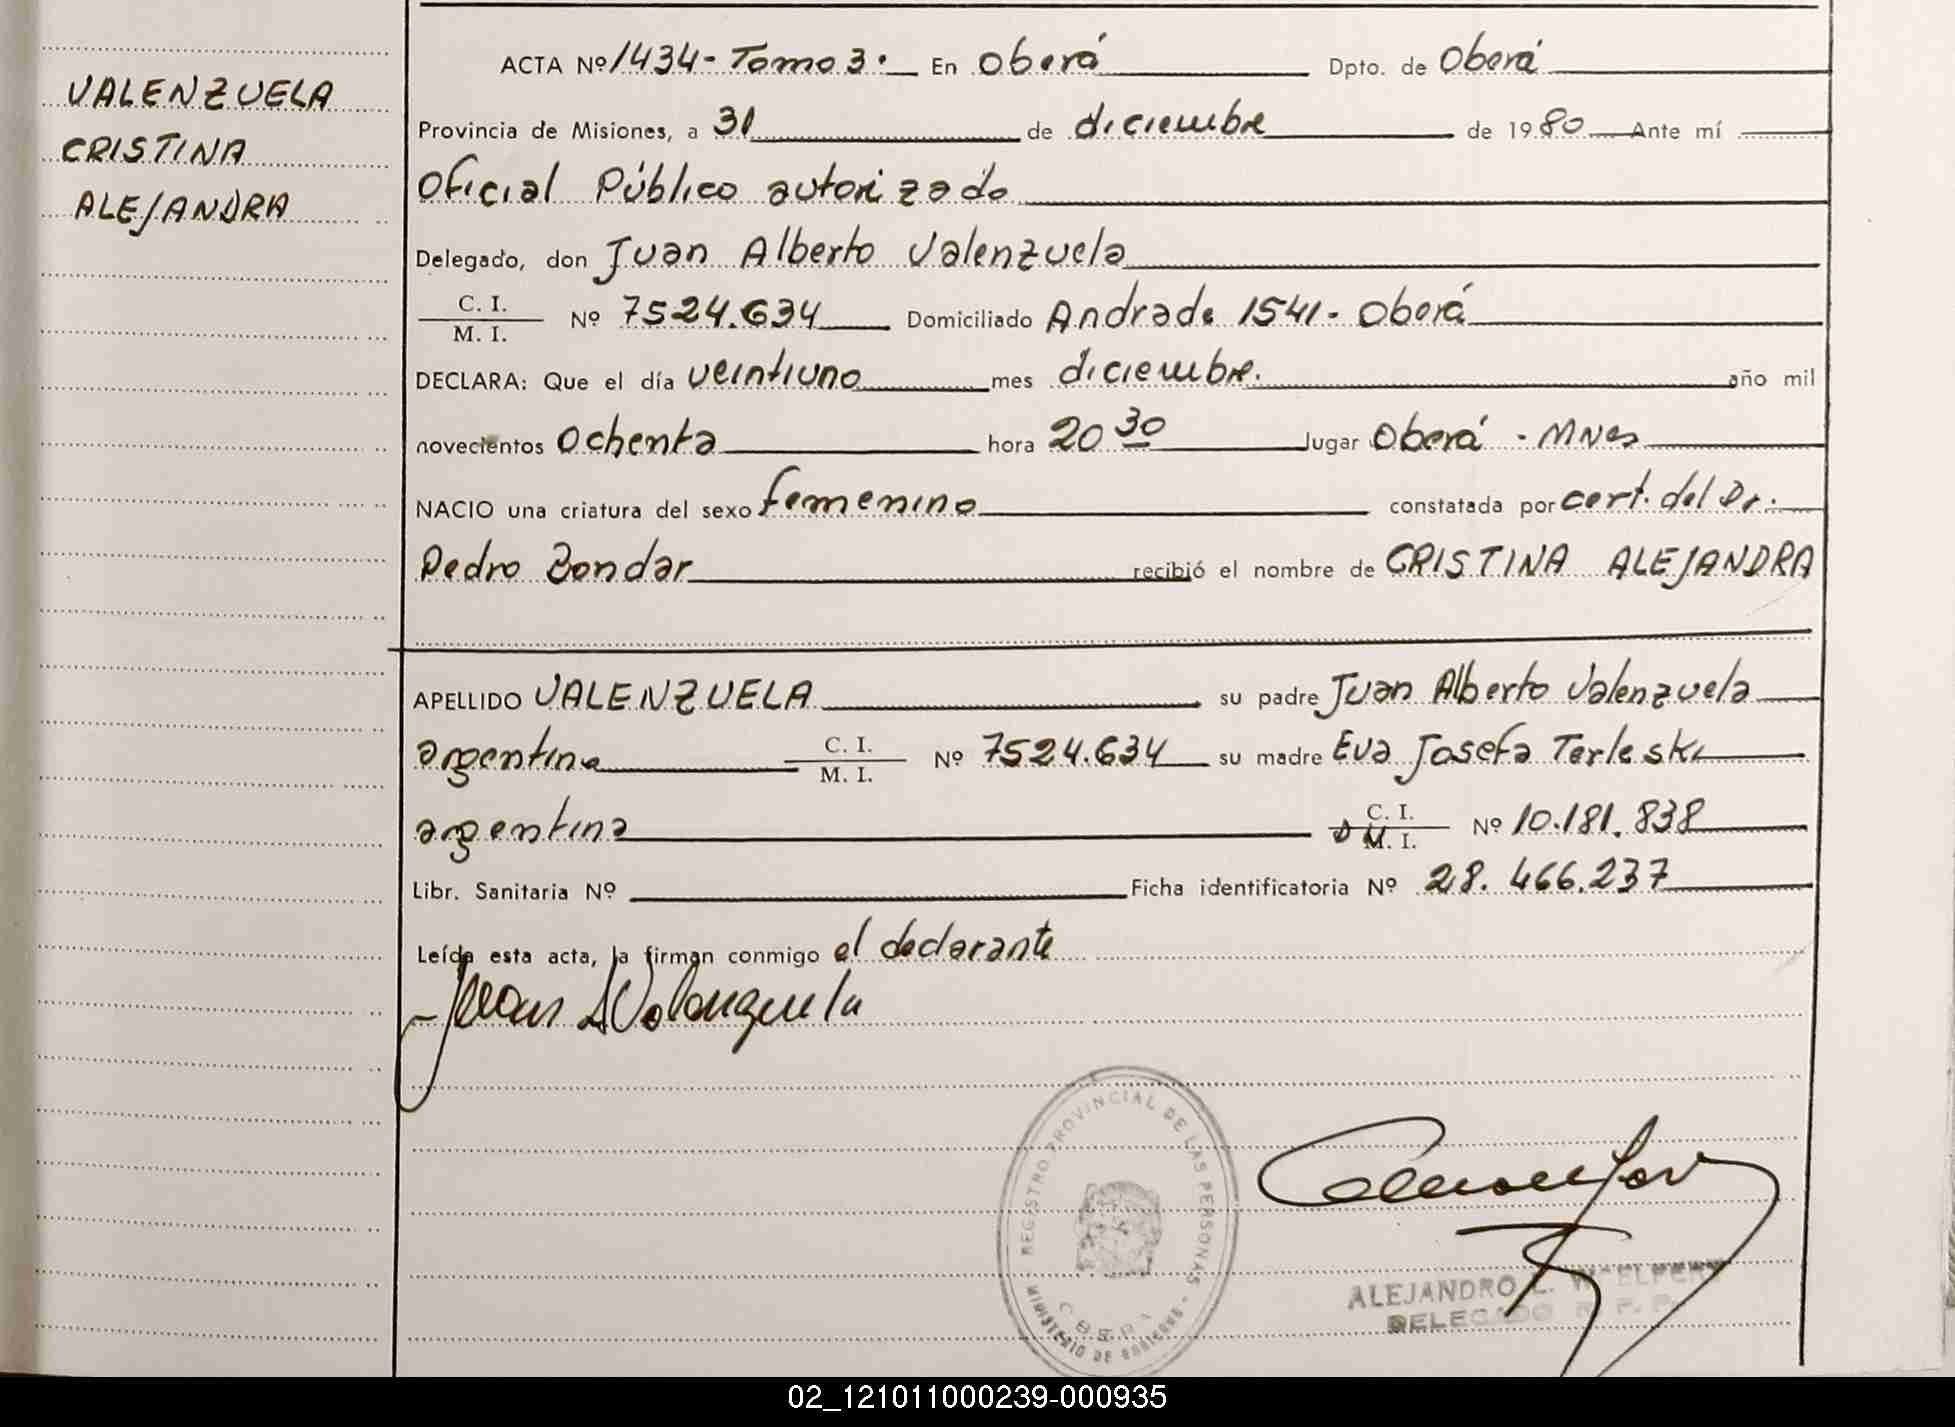 VALENZUELA
CRISTINA
ALEJANDRA
ACTA Nº 1434- Tomo 3. En Oberá Dpto. de Oberá
Provincia de Misiones, a 31 de diciembre de 1980 Ante mí
Oficial Público autorizado
Delegado, don Juan Alberto Valenzuela
C. I.
M. I.
Nº 7524.634 Domiciliado Andrade 1541- Oberá
DECLARA: Que el día veintiuno mes diciembre. año mil
novecientos Ochenta hora 20 30 lugar Oberá - Mnes
NACIO una criatura del sexo femenino constatada por cert. del Dr.
Pedro Bondar recibió el nombre de CRISTINA ALEJANDRA
APELLIDO VALENZUELA su padre Juan Alberto Valenzuela
argentina C. I. M. I. Nº 7524.634 su madre Eva Josefa Terleski
argentina C. I. M. I. Nº 10.181.838
Libr. Sanitaria Nº Ficha identificatoria Nº 28.466.237
Leída esta acta, la firman conmigo el declarante
Juan A Valenzuela
REGISTRO PROVINCIAL DE LAS PERSONAS
OBERA
MINISTERIO DE GOBIERNO
ALEJANDRO
DELEGADO R. P. P.
02_121011000239-000935